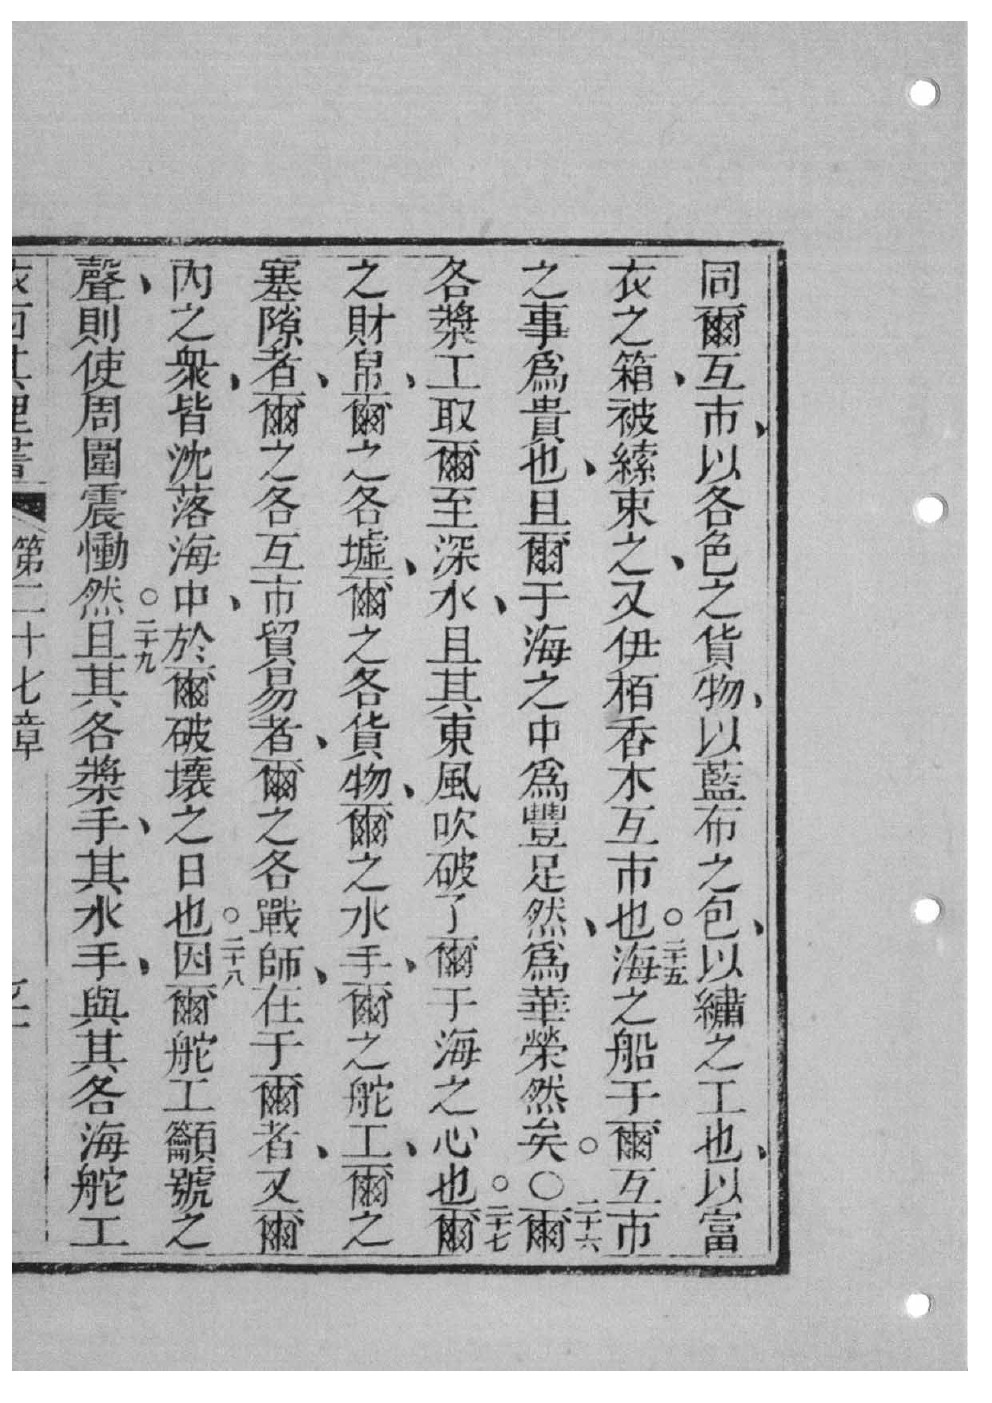 同爾互市、以各色之貨物、以藍布之包、以繡之工也、以富
衣之箱、被縤束之、又伊栢香木互市也。二十五海之船于爾互市
之事爲貴也、且爾于海之中爲豐足然、爲華榮然矣。○二十六爾
各槳工取爾至深水、且其東風吹破了爾于海之心也。二十七爾
之財帛、爾之各墟、爾之各貨物、爾之水手、爾之舵工、爾之
塞隙者、爾之各互市貿易者、爾之各戰師、在于爾者、又爾
內之衆、皆沈落海中、於爾破壞之日也。二十八因爾舵工籲號之
聲、則使周圍震慟然。二十九且其各槳手、其水手、與其各海舵工
第二十七章